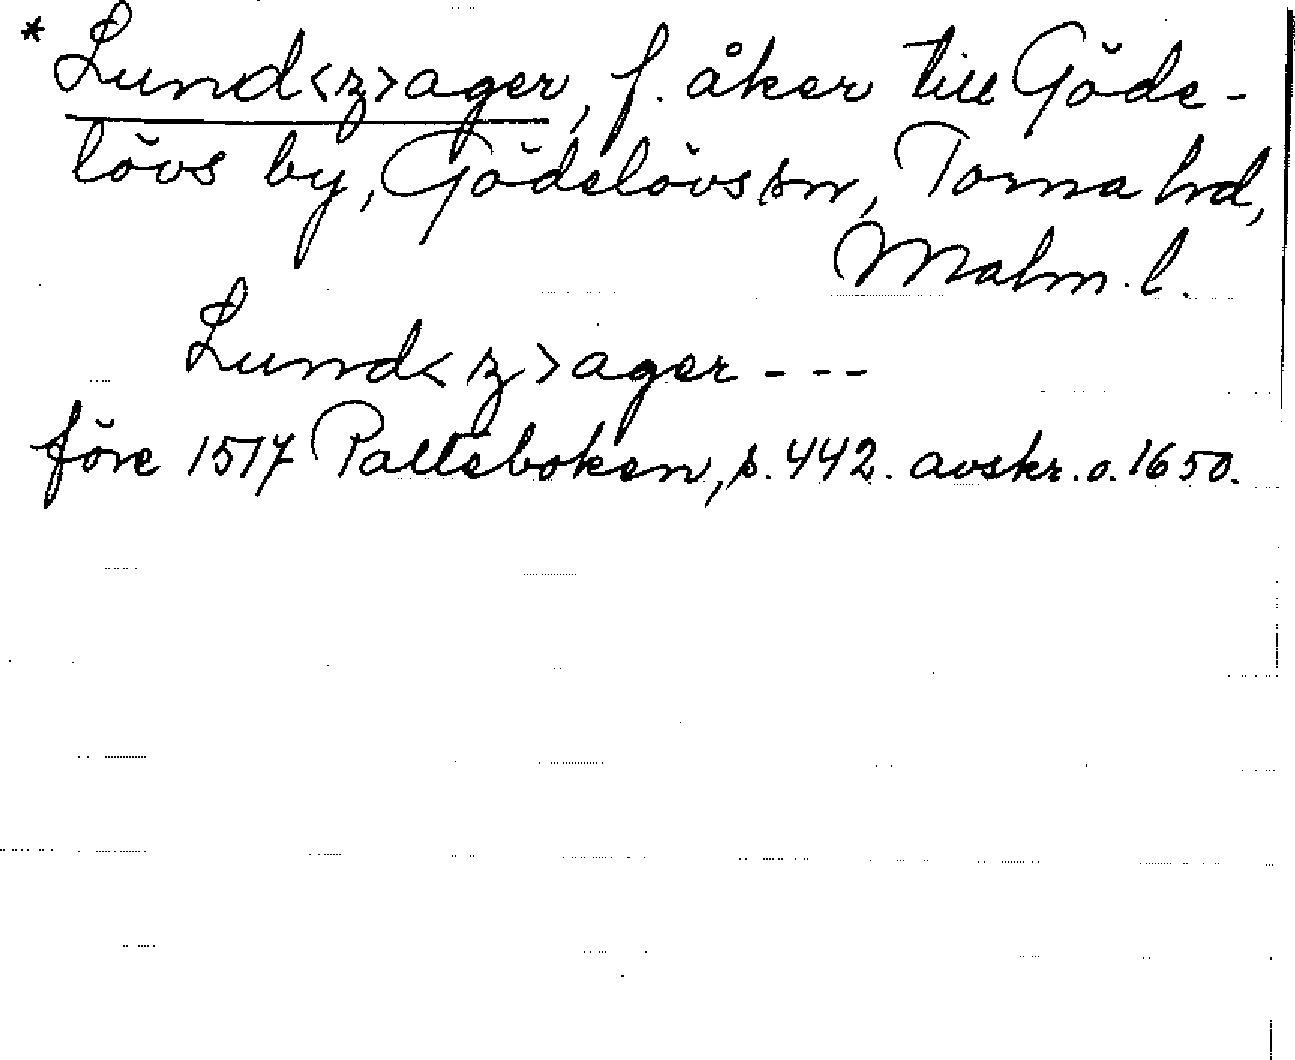 * Lund<z>ager, f. åker till Göde-
lövs by, Gödelövs sn, Torna hd,
Malm. l.
Lund<z>ager - - -
före 1517 Palteboken, s. 442. avskr. o. 1650.